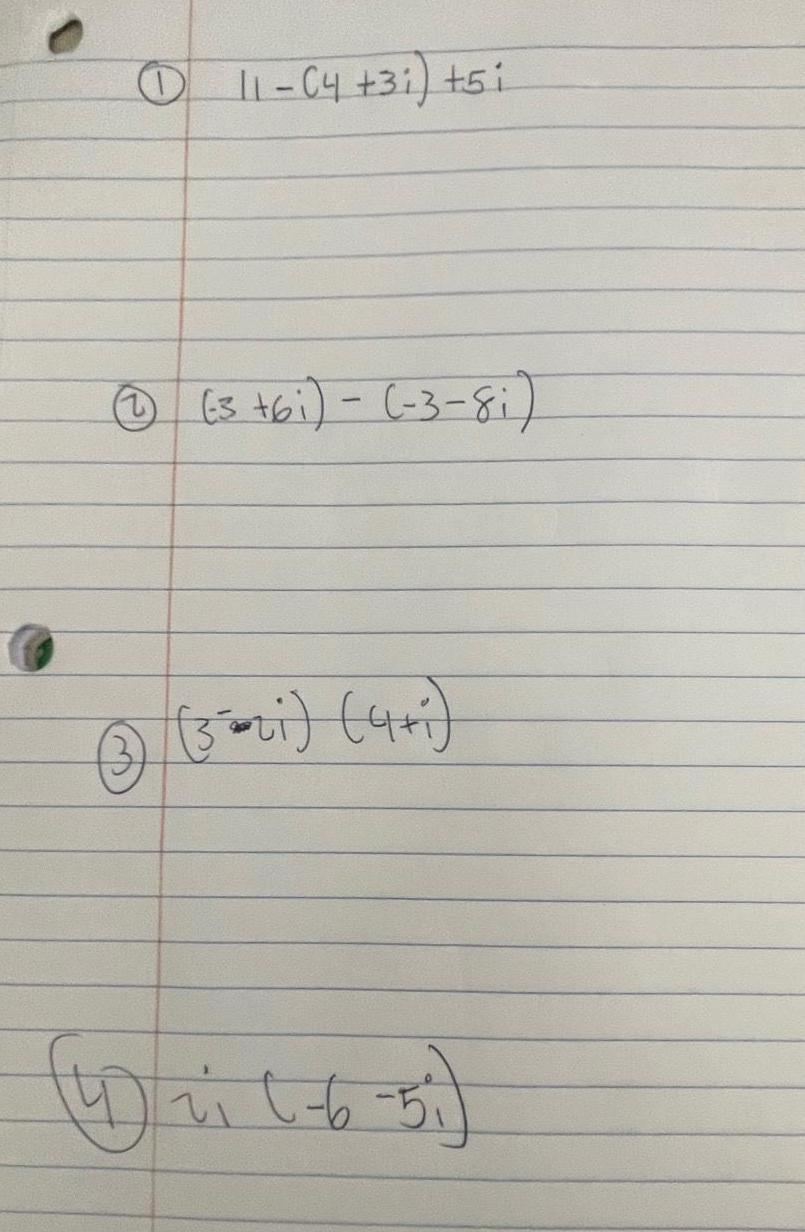 ① 11-(4+3i)+5i
② (-3+6i)-(-3-8i)
③ (3-2i)(4+i)
④ 2i(-6-5i)